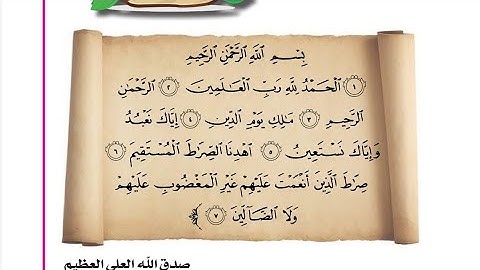 بِسْمِ اللَّهِ الرَّحْمَٰنِ الرَّحِيمِ
﴿١﴾ الْحَمْدُ لِلَّهِ رَبِّ الْعَالَمِينَ ﴿٢﴾ الرَّحْمَٰنِ
الرَّحِيمِ ﴿٣﴾ مَالِكِ يَوْمِ الدِّينِ ﴿٤﴾ إِيَّاكَ نَعْبُدُ
وَإِيَّاكَ نَسْتَعِينُ ﴿٥﴾ اهْدِنَا الصِّرَاطَ الْمُسْتَقِيمَ ﴿٦﴾
صِرَاطَ الَّذِينَ أَنْعَمْتَ عَلَيْهِمْ غَيْرِ الْمَغْضُوبِ عَلَيْهِمْ
وَلَا الضَّالِّينَ ﴿٧﴾
صدق الله العلي العظيم